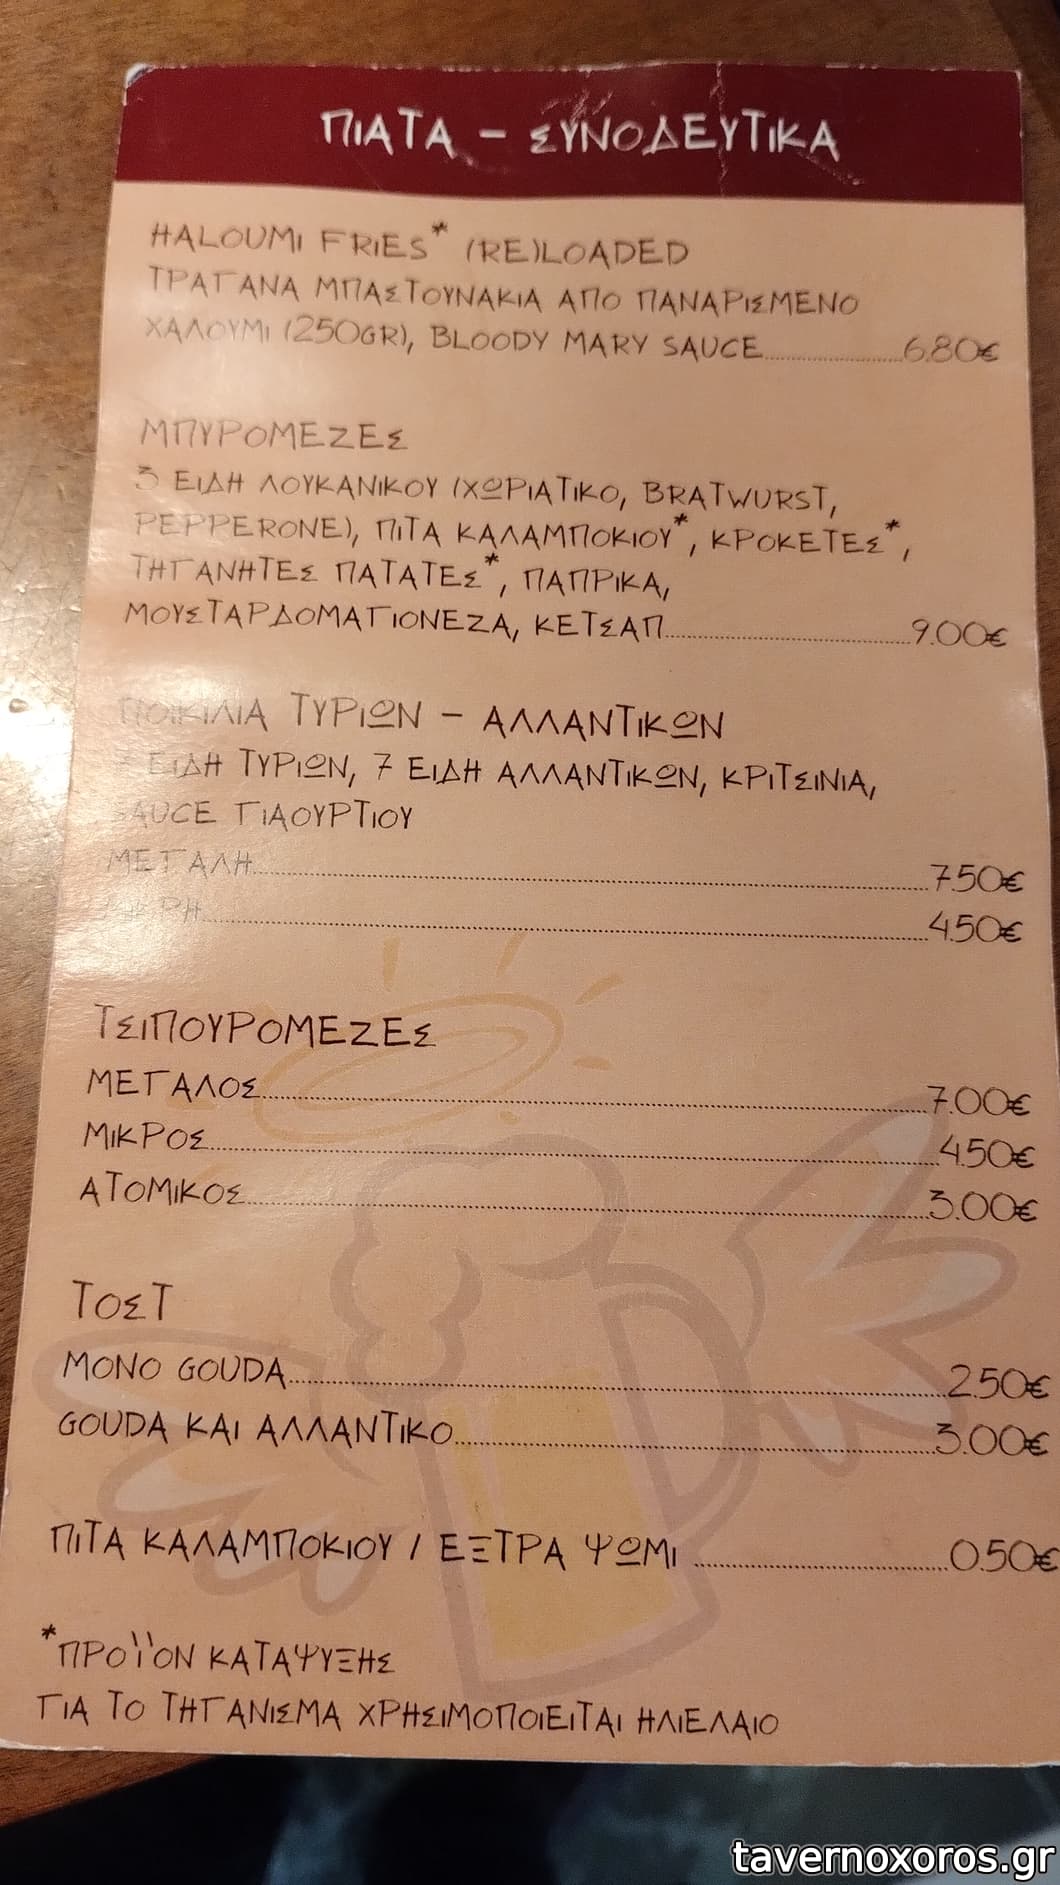 ΠΙΑΤΑ - ΣΥΝΟΔΕΥΤΙΚΑ
HALOUMI FRIES* (RE)LOADED
ΤΡΑΓΑΝΑ ΜΠΑΣΤΟΥΝΑΚΙΑ ΑΠΟ ΠΑΝΑΡΙΣΜΕΝΟ
ΧΑΛΟΥΜΙ (250GR), BLOODY MARY SAUCE 6.80€
ΜΠΥΡΟΜΕΖΕΣ
3 ΕΙΔΗ ΛΟΥΚΑΝΙΚΟΥ (ΧΩΡΙΑΤΙΚΟ, BRATWURST,
PEPPERONE), ΠΙΤΑ ΚΑΛΑΜΠΟΚΙΟΥ*, ΚΡΟΚΕΤΕΣ*,
ΤΗΓΑΝΗΤΕΣ ΠΑΤΑΤΕΣ*, ΠΑΠΡΙΚΑ,
ΜΟΥΣΤΑΡΔΟΜΑΓΙΟΝΕΖΑ, ΚΕΤΣΑΠ 9.00€
ΠΟΙΚΙΛΙΑ ΤΥΡΙΩΝ - ΑΛΛΑΝΤΙΚΩΝ
ΕΙΔΗ ΤΥΡΙΩΝ, 7 ΕΙΔΗ ΑΛΛΑΝΤΙΚΩΝ, ΚΡΙΤΣΙΝΙΑ,
SAUCE ΓΙΑΟΥΡΤΙΟΥ
ΜΕΓΑΛΗ 7.50€
ΜΙΚΡΗ 4.50€
ΤΣΙΠΟΥΡΟΜΕΖΕΣ
ΜΕΓΑΛΟΣ 7.00€
ΜΙΚΡΟΣ 4.50€
ΑΤΟΜΙΚΟΣ 3.00€
ΤΟΣΤ
ΜΟΝΟ GOUDA 2.50€
GOUDA ΚΑΙ ΑΛΛΑΝΤΙΚΟ 3.00€
ΠΙΤΑ ΚΑΛΑΜΠΟΚΙΟΥ / ΕΞΤΡΑ ΨΩΜΙ 0.50€
*ΠΡΟΪΟΝ ΚΑΤΑΨΥΞΗΣ
ΓΙΑ ΤΟ ΤΗΓΑΝΙΣΜΑ ΧΡΗΣΙΜΟΠΟΙΕΙΤΑΙ ΗΛΙΕΛΑΙΟ
tavernoxoros.gr